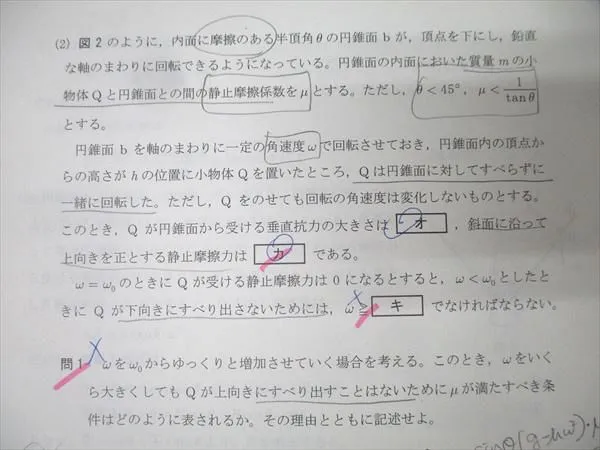 (2) 図2のように，内面に摩擦のある半頂角θの円錐面bが，頂点を下にし，鉛直
な軸のまわりに回転できるようになっている。円錐面の内面においた質量mの小
物体Qと円錐面との間の静止摩擦係数をμとする。ただし，θ<45°，μ<1/tanθ
とする。
円錐面bを軸のまわりに一定の角速度ωで回転させておき，円錐面内の頂点か
らの高さがhの位置に小物体Qを置いたところ，Qは円錐面に対してすべらずに
一緒に回転した。ただし，Qをのせても回転の角速度は変化しないものとする。
このとき，Qが円錐面から受ける垂直抗力の大きさは オ ，斜面に沿って
上向きを正とする静止摩擦力は カ である。
ω=ω₀のときにQが受ける静止摩擦力は0になるとすると，ω<ω₀としたと
きにQが下向きにすべり出さないためには，ω≧ キ でなければならない。
問1 ωをω₀からゆっくりと増加させていく場合を考える。このとき，ωをいく
ら大きくしてもQが上向きにすべり出すことはないためにμが満たすべき条
件はどのように表されるか。その理由とともに記述せよ。